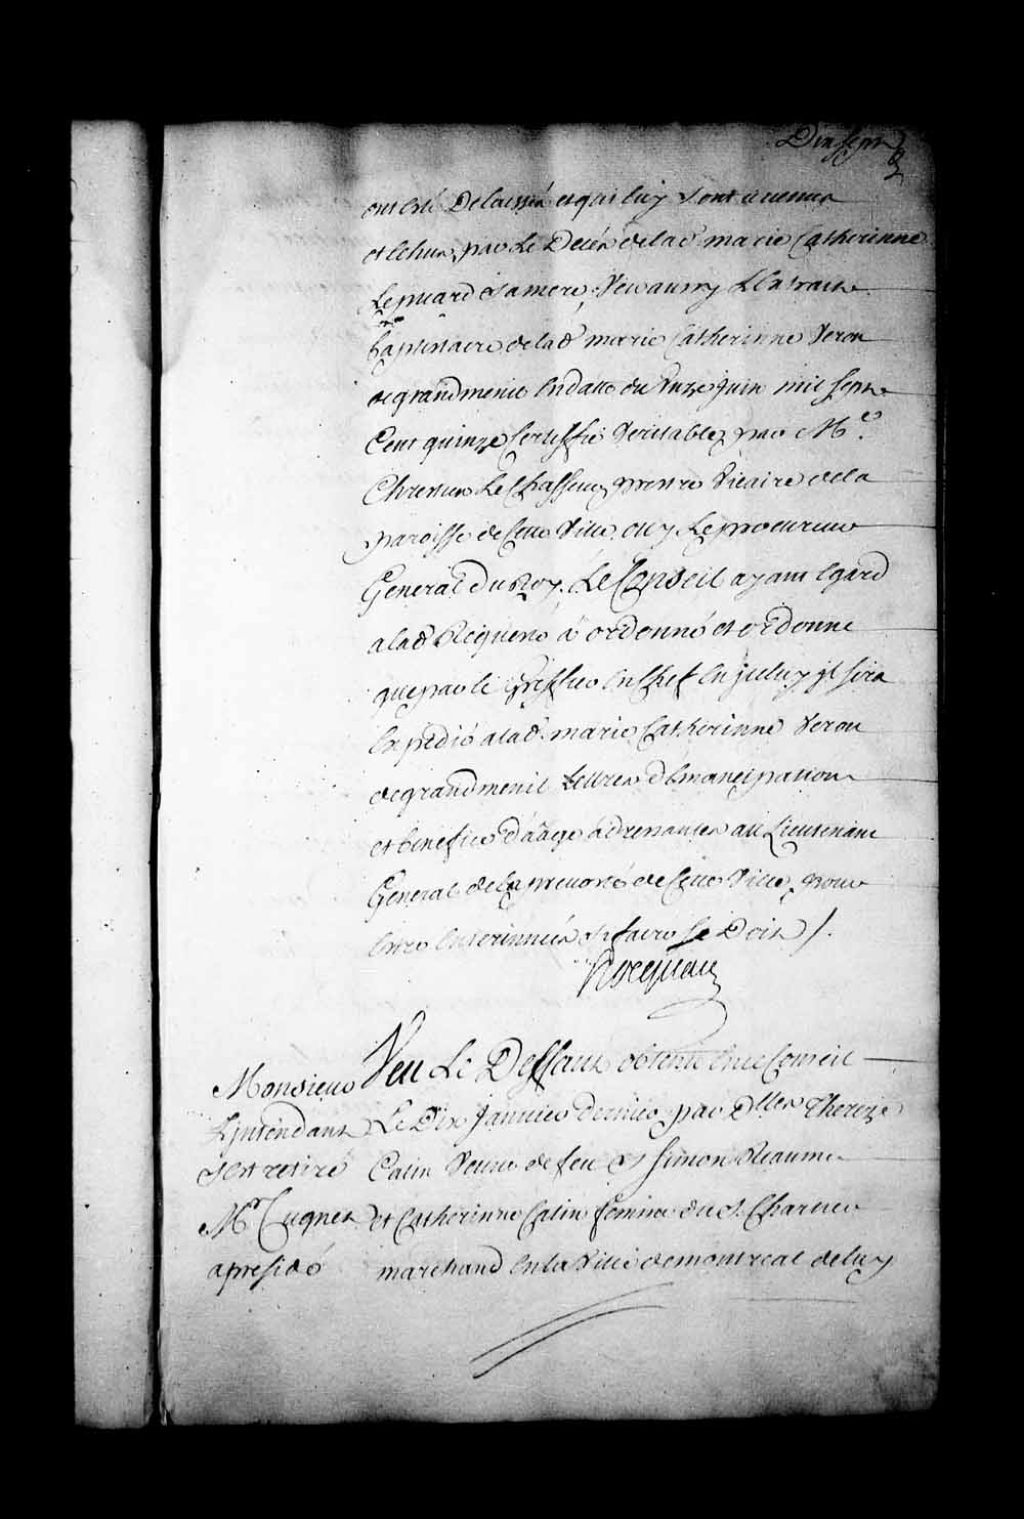 Dix sept
ont esté Delaissés et qui luy sont avenus
et Echus, par Le Decés de lad. marie Catherinne
Lepicard sa mere, Veu aussy L'Extraict
baptistaire de lad. marie Catherinne Veron
de grandmenil En datte du Onze Juin mil sept
Cent quinze Certiffié Veritable par Mre.
Chretien Le Chasseur prestre Vicaire de la
paroisse de Cette Ville, ouy Le procureur
General du Roy. Le Conseil ayant Egard
a lad. Requeste a ordonné et ordonne
que par le greffier En Chef En Iceluy il sera
Expedié a lad. marie Catherinne Veron
de grandmenil Lettres d'Emancipation
et benefice d'aâge adressantes au Lieutenant
General de la prevosté de Cette Ville, pour
Estre Enterinnées et faire se Doit /.
Hocquart
Veu Le Deffaut obtenu En ce Conseil
Le Dix Janvier dernier par Dlles Thereze
Catin Veuve de feu Sr Simon Reaume
et Catherinne Catin femme du Sr. Charrier
marchand En la Ville de montreal de luy
Monsieur
L'jntendant
s'est retiré
Mr Cugnet
a presidé